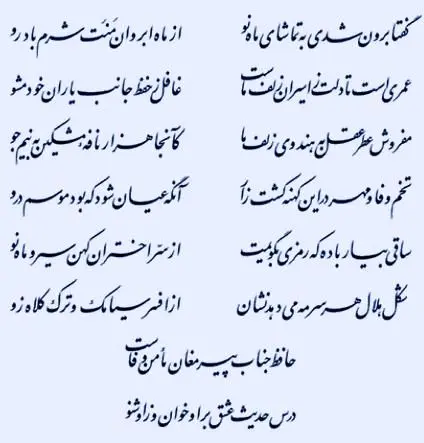 گفتا برون شدی به تماشای ماه نو از ماه ابروان منت شرم باد رو
عمری است تا دلت ز اسیران زلف ماست غافل ز حفظ جانب یاران خود مشو
مفروش عطر عقل به هندوی زلف ما کآنجا هزار نافه مشکین به نیم جو
تخم وفا و مهر در این کهنه کشت زار آنگه عیان شود که بود موسم درو
ساقی بیار باده که رمزی بگویمت از سر اختران کهن سیر و ماه نو
شکل هلال هر سر مه می دهد نشان از افسر سیامک و ترک کلاه زو
حافظ جناب پیر مغان مأمن وفاست
درس حدیث عشق بر او خوان و ز او شنو